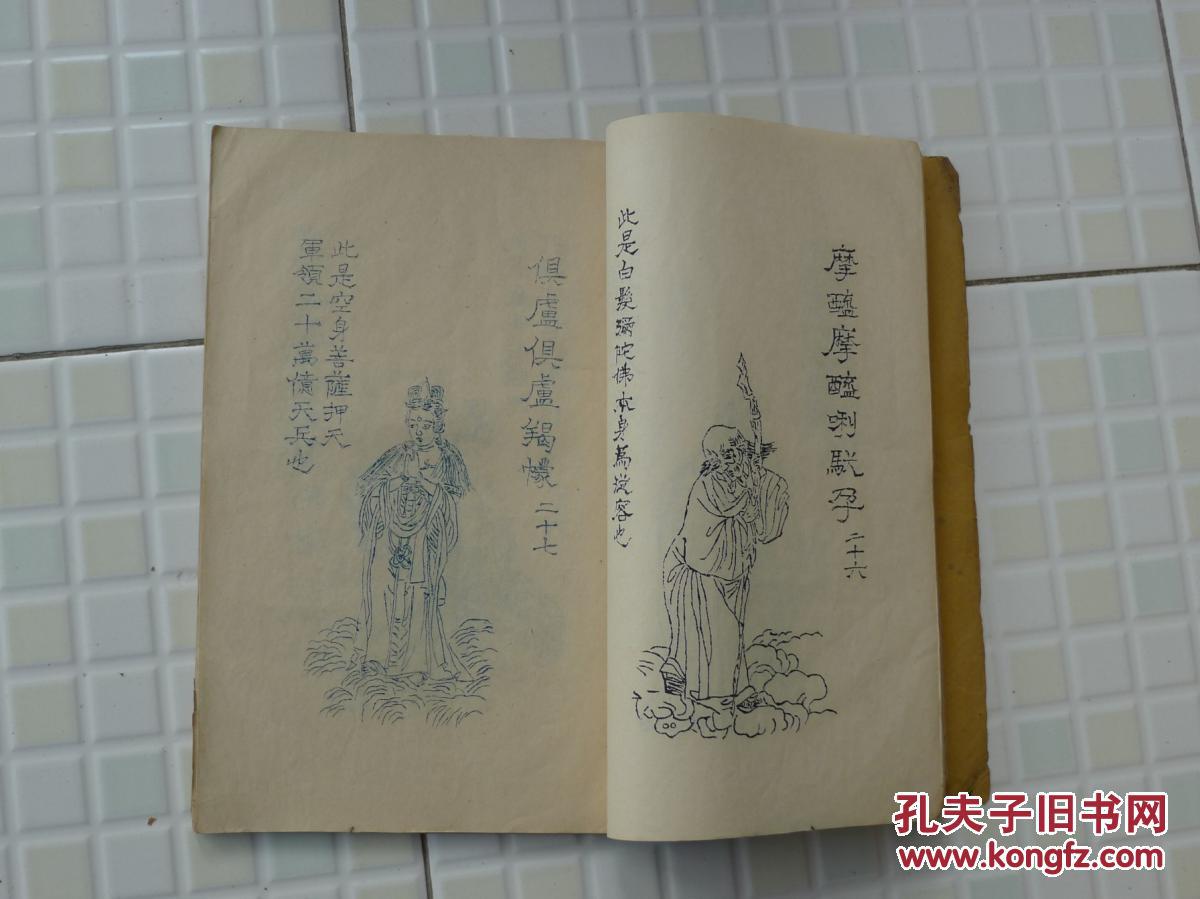 摩醯摩醯唎馱孕 二十六
此是白髮彌陀佛本身為說客也
俱盧俱盧羯懞 二十七
此是空身菩薩押天
軍領二十萬億天兵也
孔夫子旧书网
www.kongfz.com